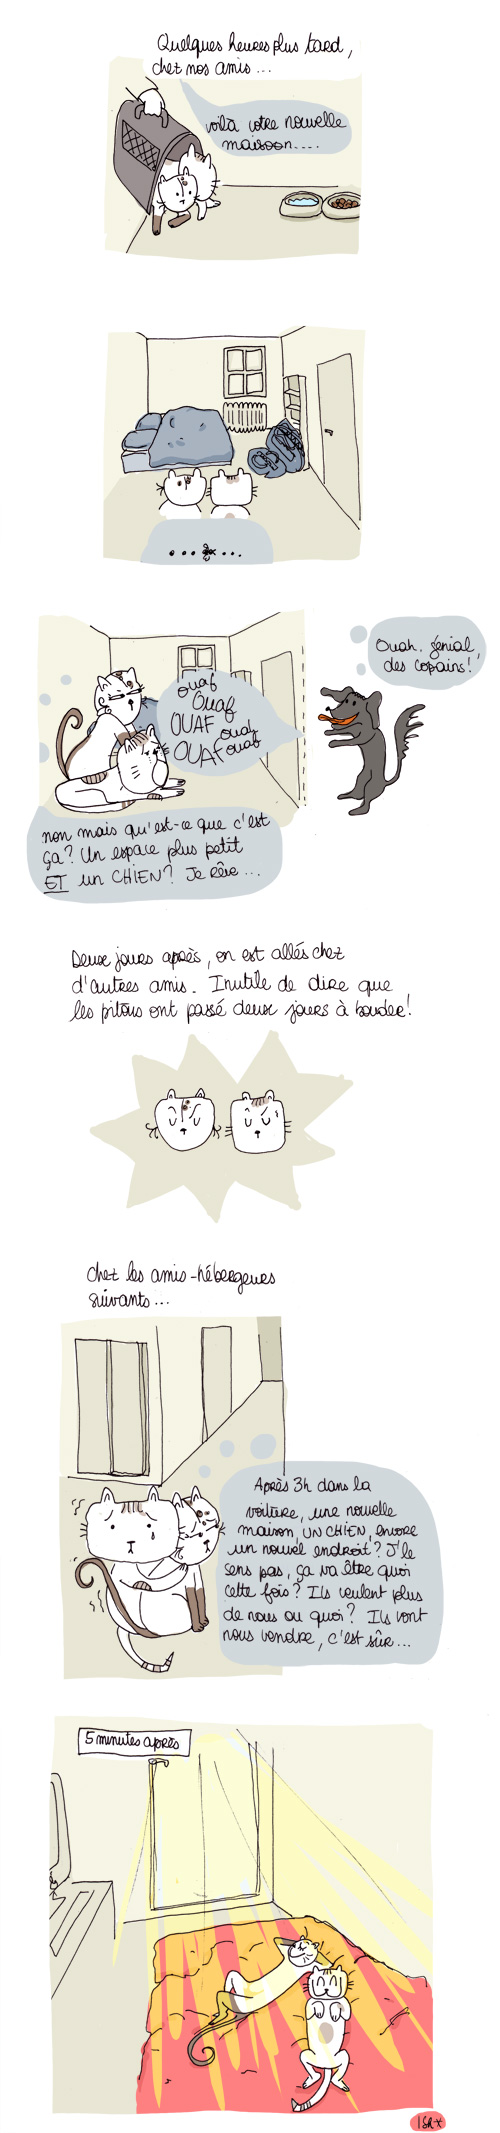 Quelques heures plus tard,
chez nos amis...
voilà votre nouvelle
maisoon....
Ouaf
Ouaf
OUAF ouaf
OUAF ouaf
Ouah. génial,
des copains!
non mais qu'est-ce que c'est
ça? Un espace plus petit
ET un CHIEN? Je rêve...
Deux jours après, on est allés chez
d'autres amis. Inutile de dire que
les pitous ont passé deux jours à bouder!
chez les amis-hébergeurs
suivants...
Après 3h dans la
voiture, une nouvelle
maison, UN CHIEN, encore
un nouvel endroit? J'le
sens pas, ça va être quoi
cette fois? Ils veulent plus
de nous ou quoi? Ils vont
nous vendre, c'est sûr...
5 minutes après